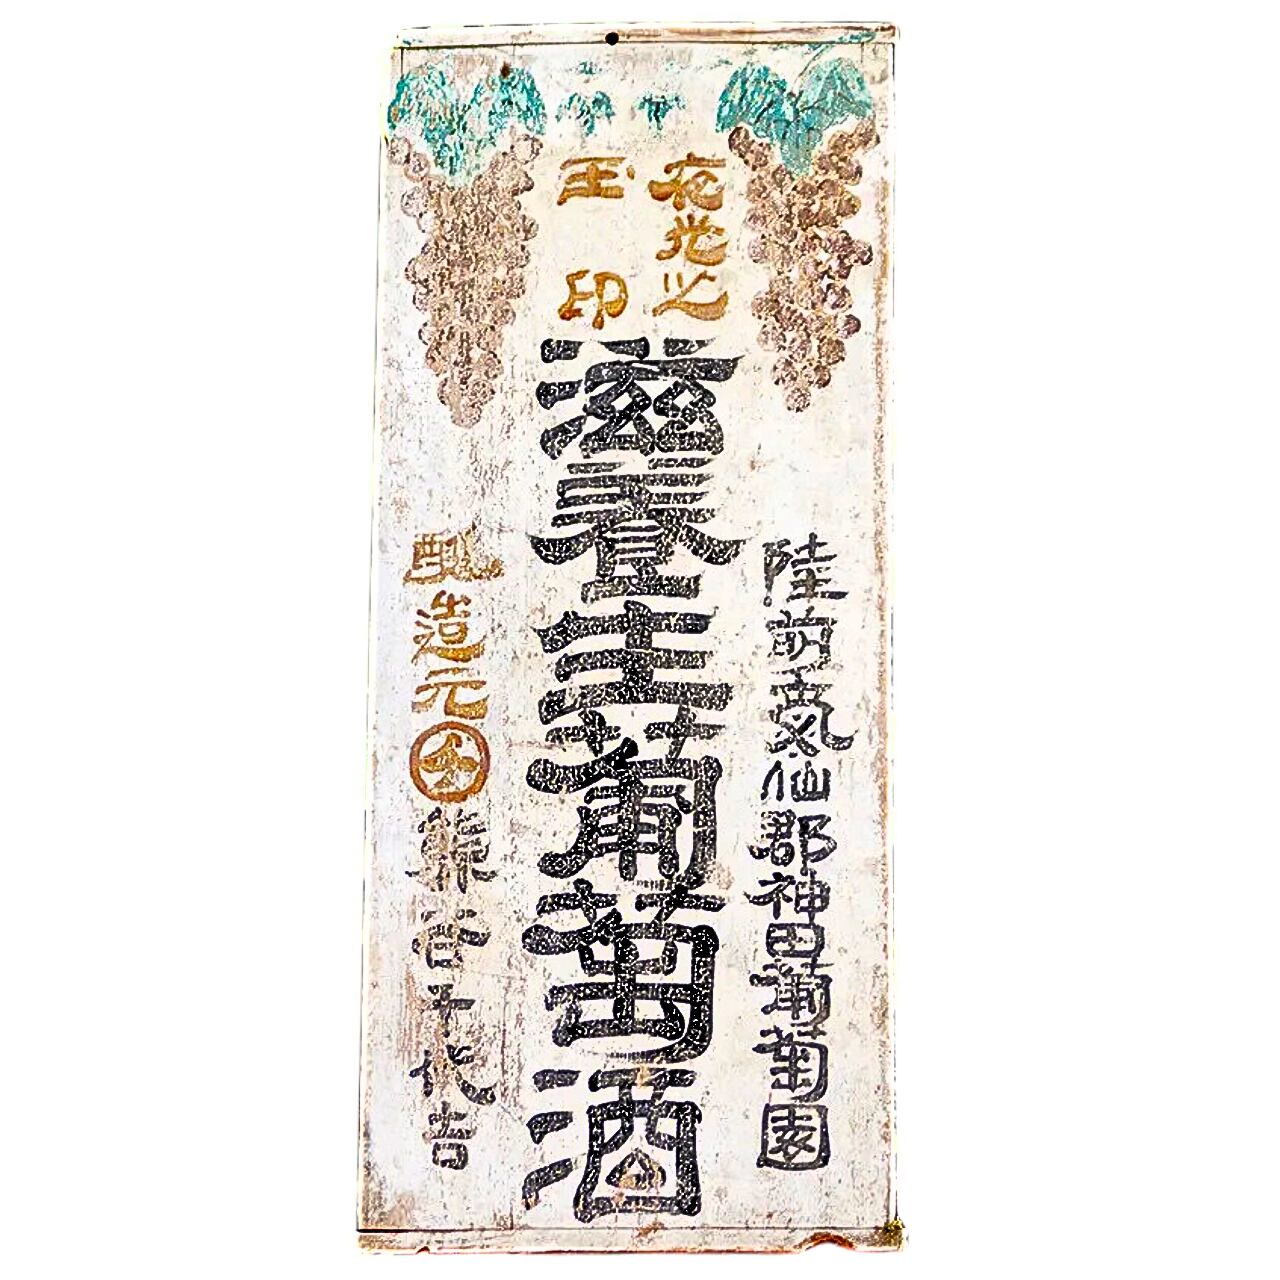 陸前氣仙郡神田葡萄園
夜光之
玉印
滋養生葡萄酒
醸造元
熊谷千代吉